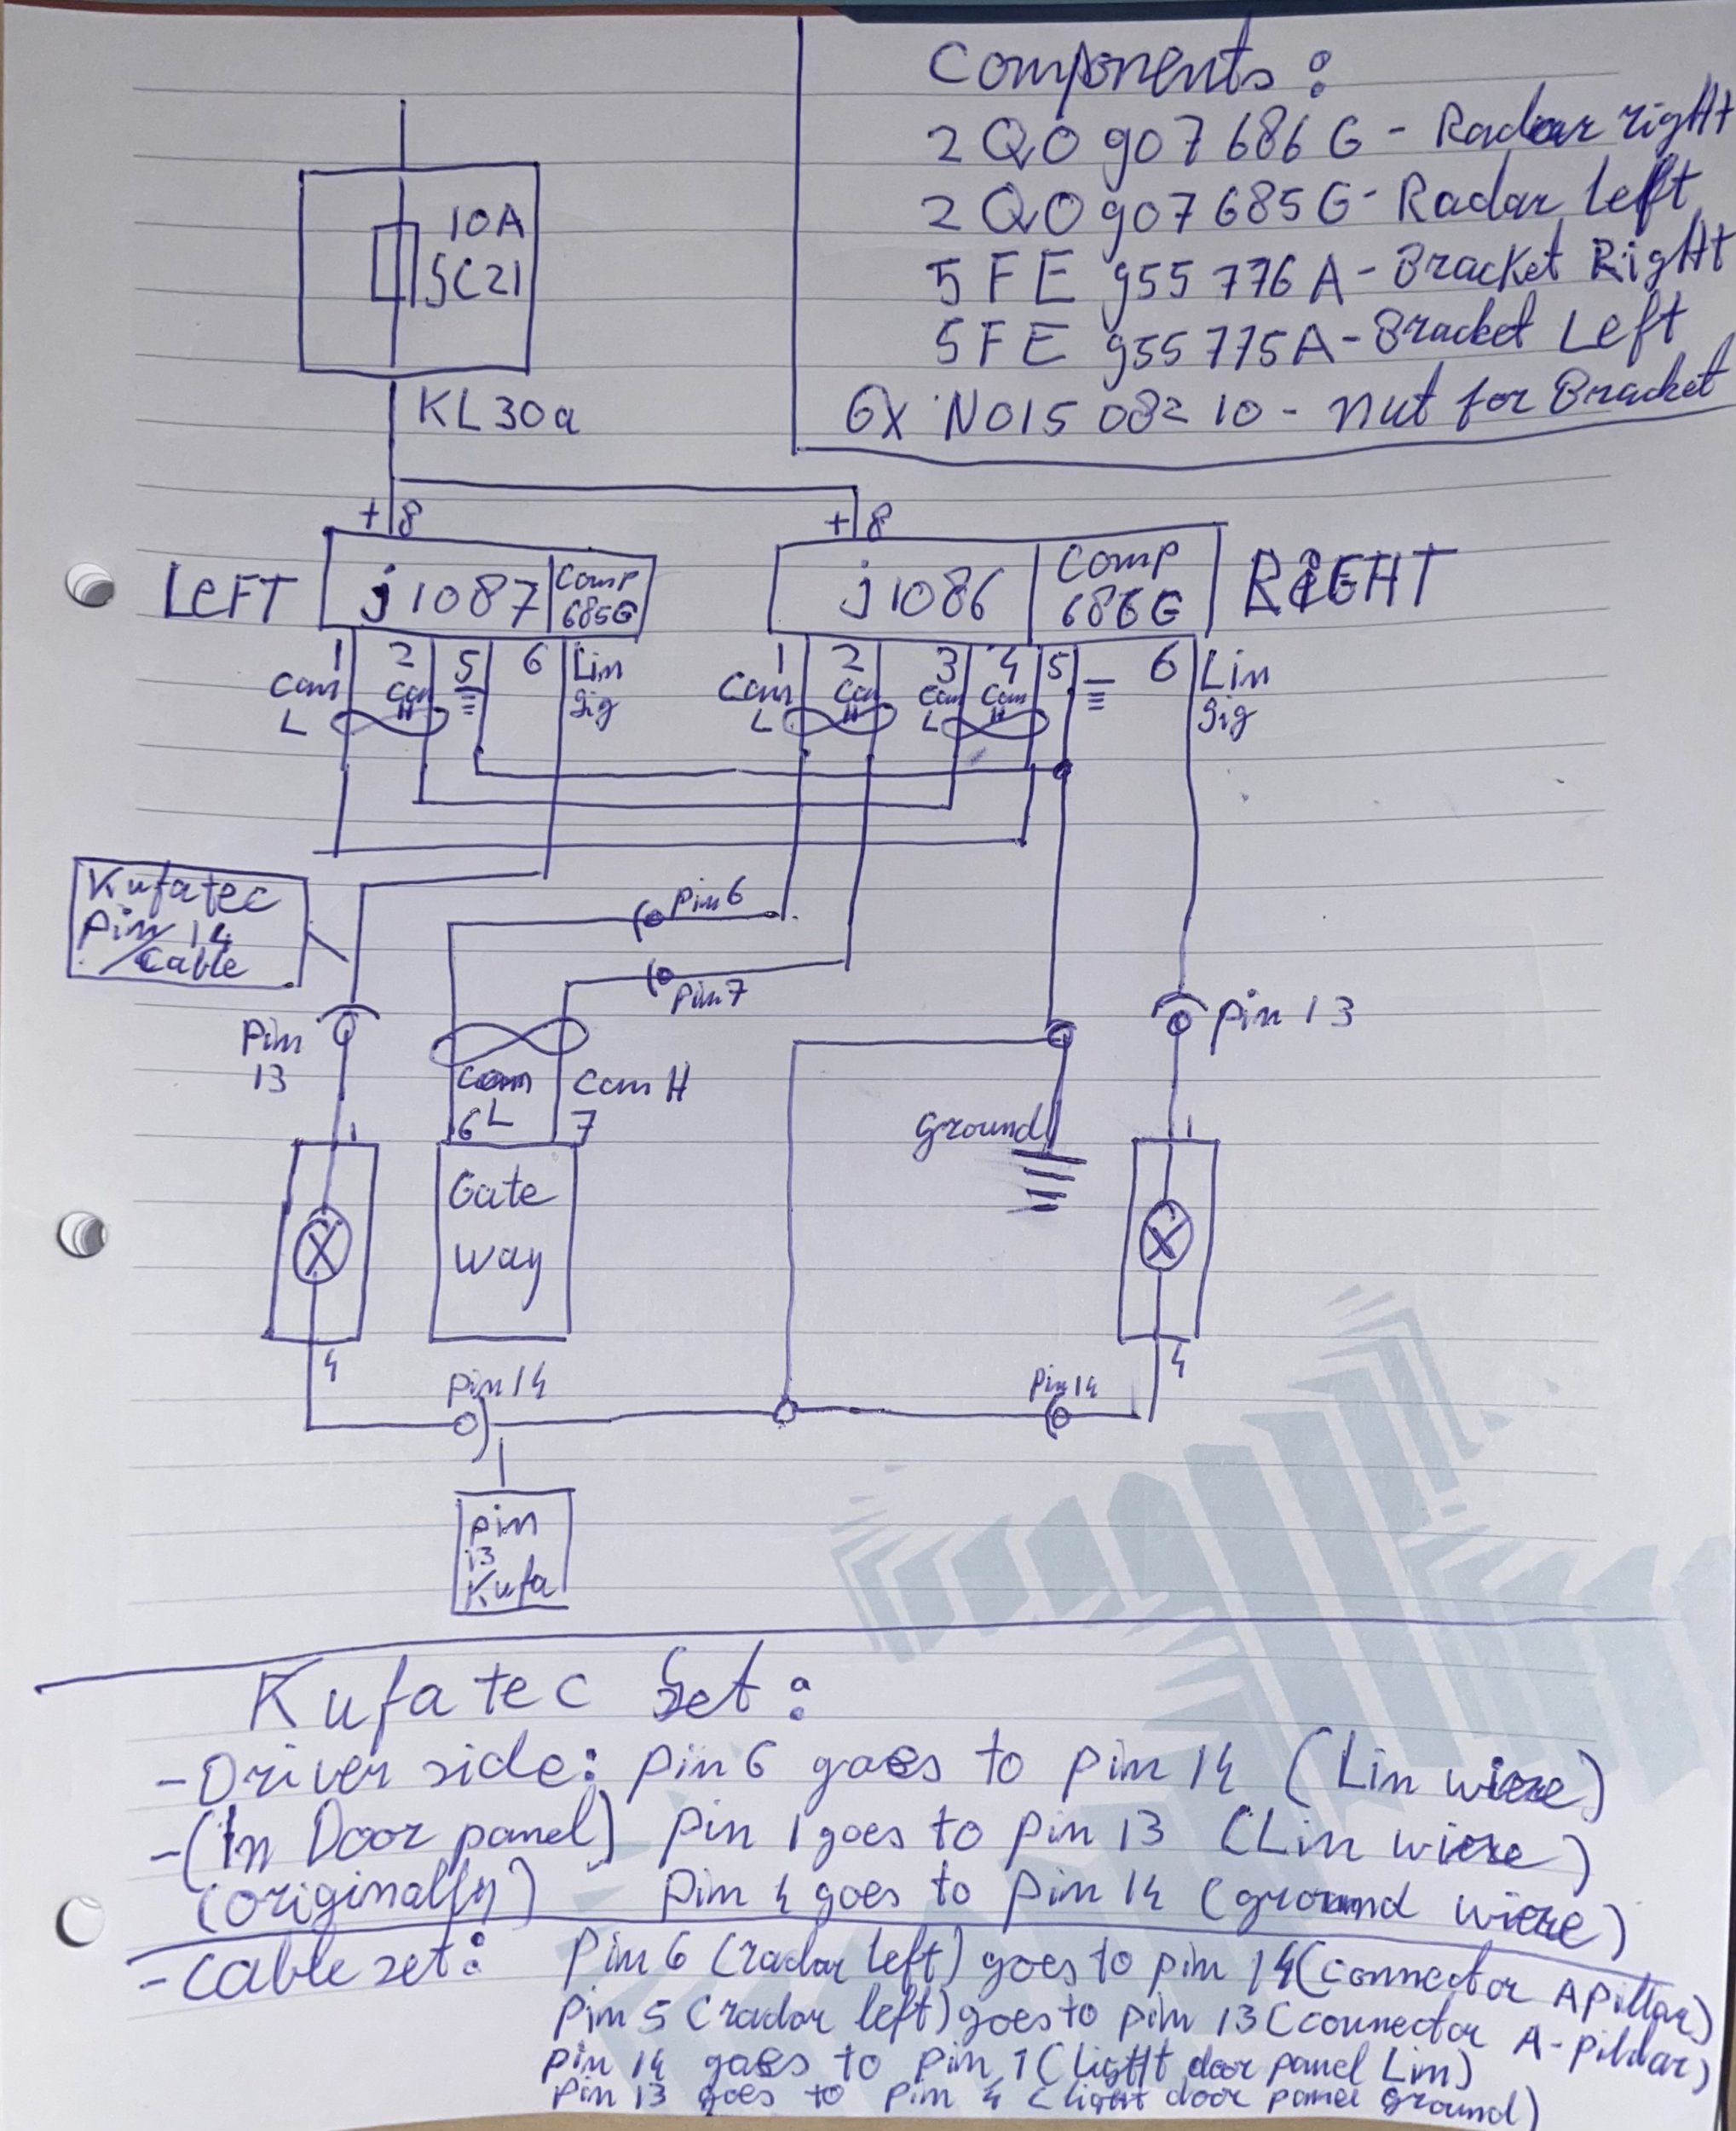 Components :
2Q0 907 686 G - Radar right
2Q0 907 685 G - Radar Left
5FE 955 776 A - Bracket Right
5FE 955 775 A - Bracket Left
6x N015 082 10 - nut for Bracket
10A
SC21
KL30a
+ 8
+ 8
LEFT
j1087
Comp
685G
j1086
Comp
686G
RIGHT
1 2 5 6
Can L
Can H
Lin
Sig
1 2 3 4 5 6
Can L
Can H
Can L
Can H
Lin
Sig
Kufatec
Pin 14
Cable
pin6
pin7
Pin
13
pin 13
Can L
Can H
6
7
ground
1
1
Gate
way
4
4
pin14
pin14
pin
13
Kufa
Kufatec Set :
- Driver side : pin 6 goes to pin 14 (Lin wiere)
- (In Door panel) pin 1 goes to pin 13 (Lin wiere)
(originally) pin 4 goes to pin 14 (ground wiere)
- cable set : Pin 6 (radar left) goes to pin 14 (connector A pillar)
pin 5 (radar left) goes to pin 13 (connector A-pillar)
pin 14 goes to pin 1 (light door panel Lin)
pin 13 goes to pin 4 (light door panel ground)